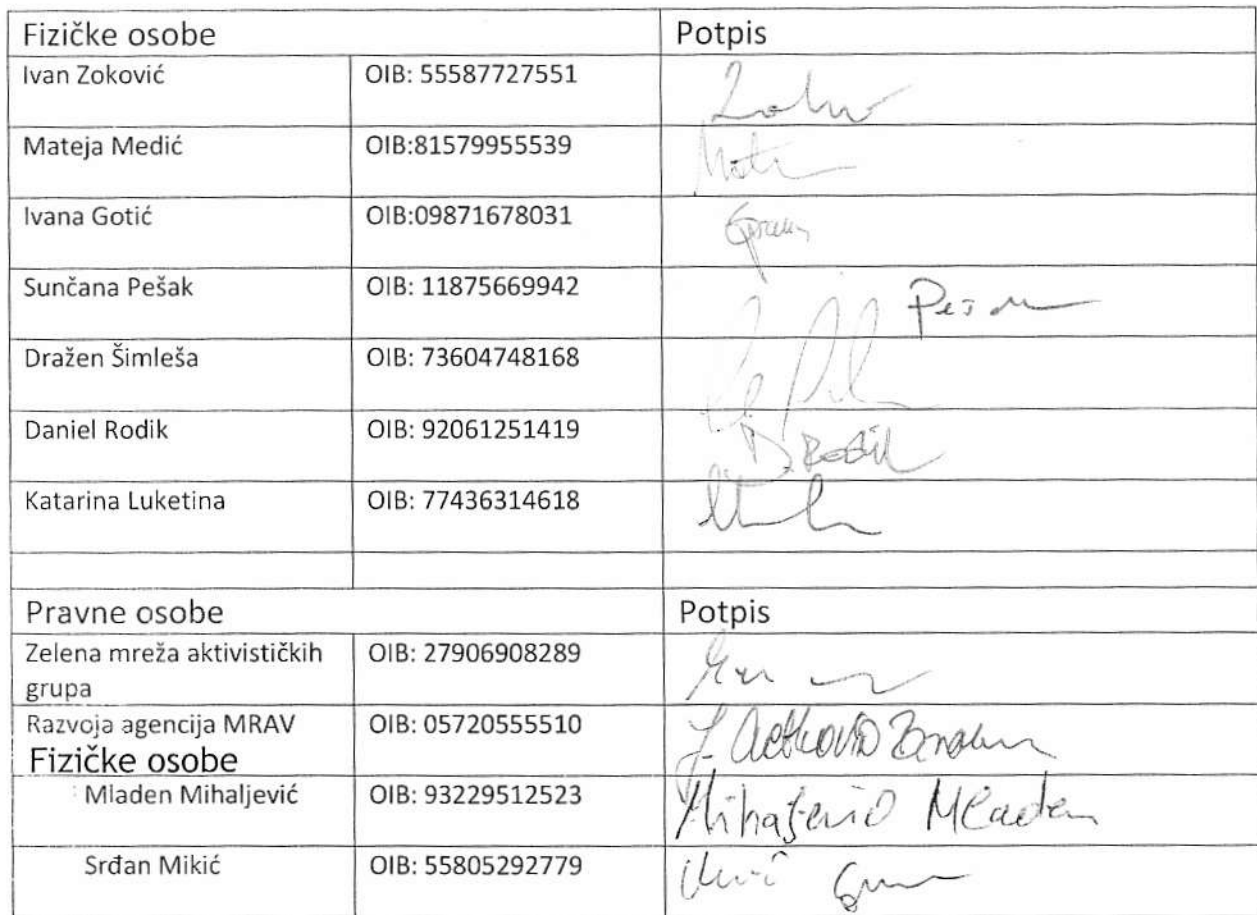 Fizičke osobe Potpis
Ivan Zoković OIB: 55587727551
Mateja Medić OIB:81579955539
Ivana Gotić OIB:09871678031
Sunčana Pešak OIB: 11875669942
Dražen Šimleša OIB: 73604748168
Daniel Rodik OIB: 92061251419 D. Rodik
Katarina Luketina OIB: 77436314618
Pravne osobe Potpis
Zelena mreža aktivističkih OIB: 27906908289
grupa
Razvoja agencija MRAV OIB: 05720555510
Fizičke osobe
Mladen Mihaljević OIB: 93229512523 Mladen
Srđan Mikić OIB: 55805292779